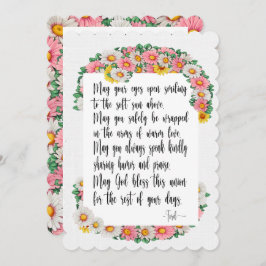 May your eyes open smiling
to the soft sun above.
May you safely be wrapped
in the arms of warm love.
May you always speak kindly
sharing humor and praise.
May God bless this union
for the rest of your days.